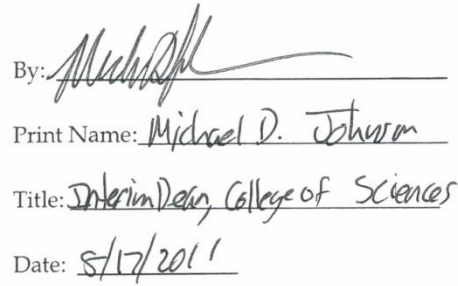 By:
Print Name: Michael D. Johnson
Title: Interim Dean, College of Sciences
Date: 8/17/2011